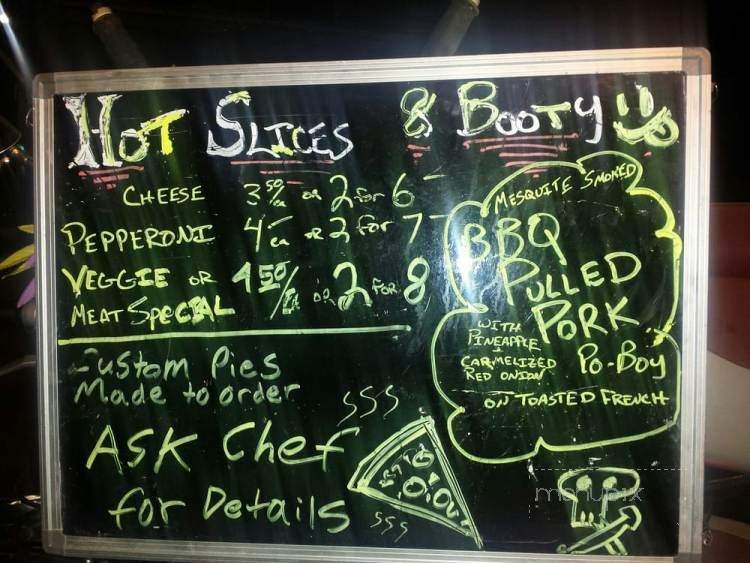 HOT SLICES & BOOTY
CHEESE 3 50/ea or 2 for 6-
PEPPERONI 4-ea or 2 for 7-
VEGGIE OR
MEAT SPECIAL 4 50/ea or 2 FOR 8
Custom Pies
Made to order
SSS
ASK Chef
for Details
SSS
MESQUITE SMOKED
BBQ
PULLED
PORK
WITH
PINEAPPLE
CARMELIZED
RED ONION
PO-BOY
ON TOASTED FRENCH
menupix